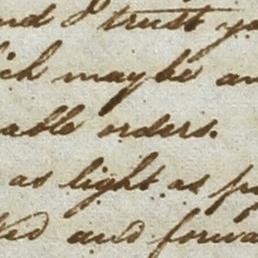 nd I trust yo
ich may be an
able orders.
as light as p
ed and forwa